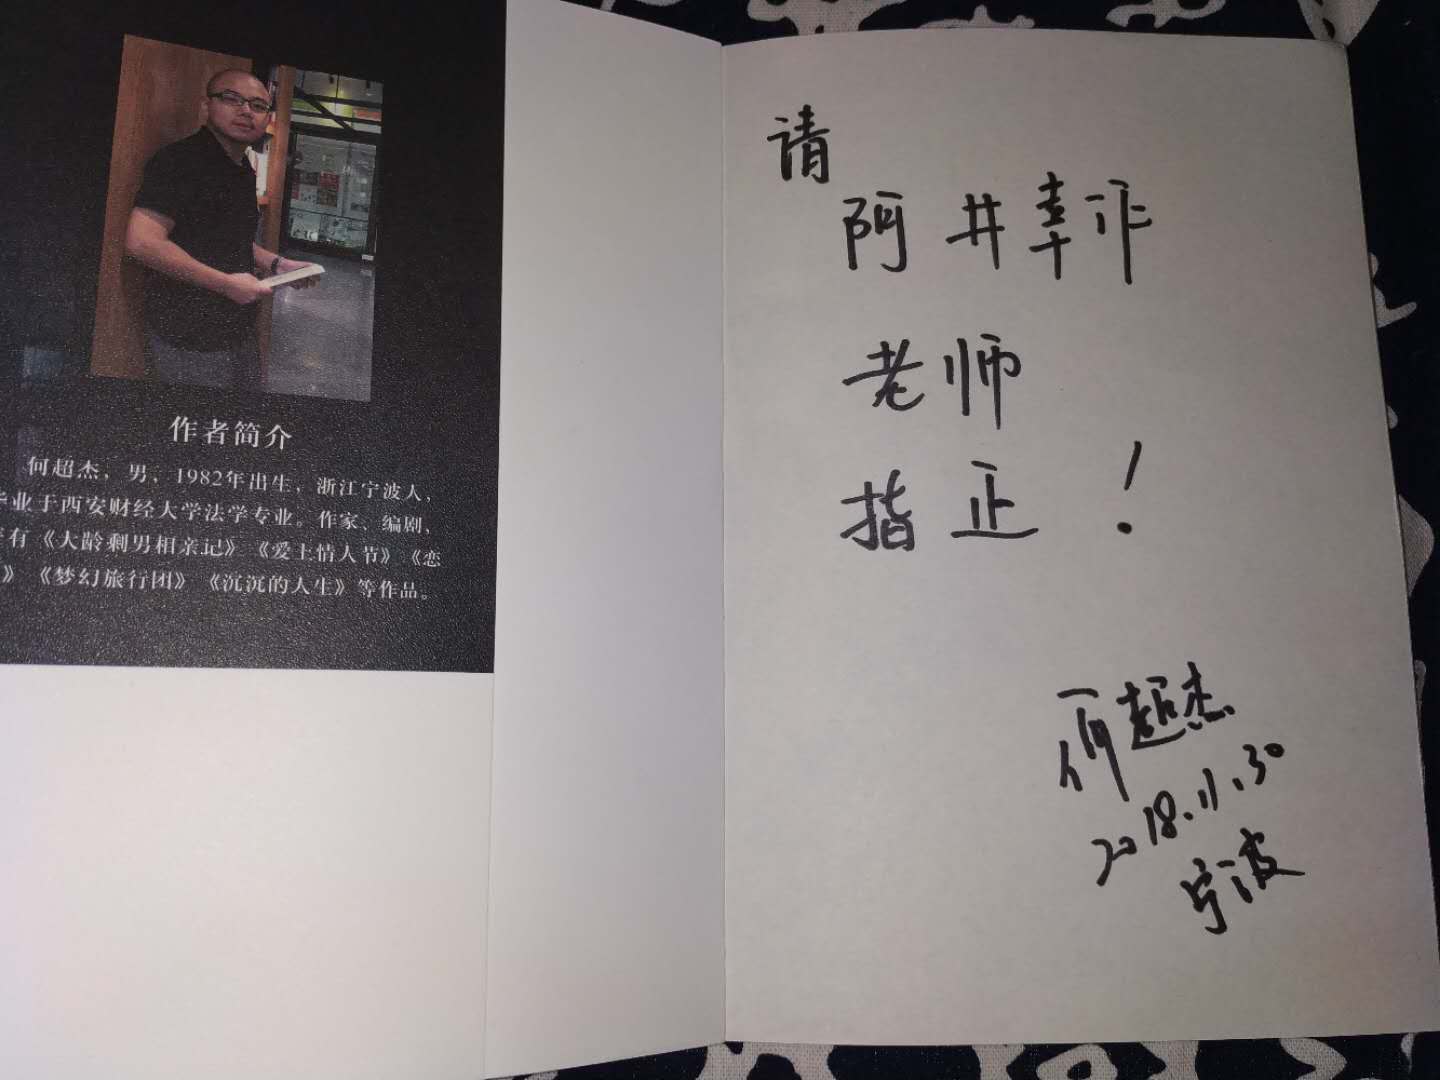 作者简介
何超杰，男，1982年出生，浙江宁波人，
毕业于西安财经大学法学专业。作家、编剧，
有《大龄剩男相亲记》《爱上情人节》《恋
》《梦幻旅行团》《沉沉的人生》等作品。
请
阿井幸作
老师
指正！
何超杰
2018.11.30
宁波